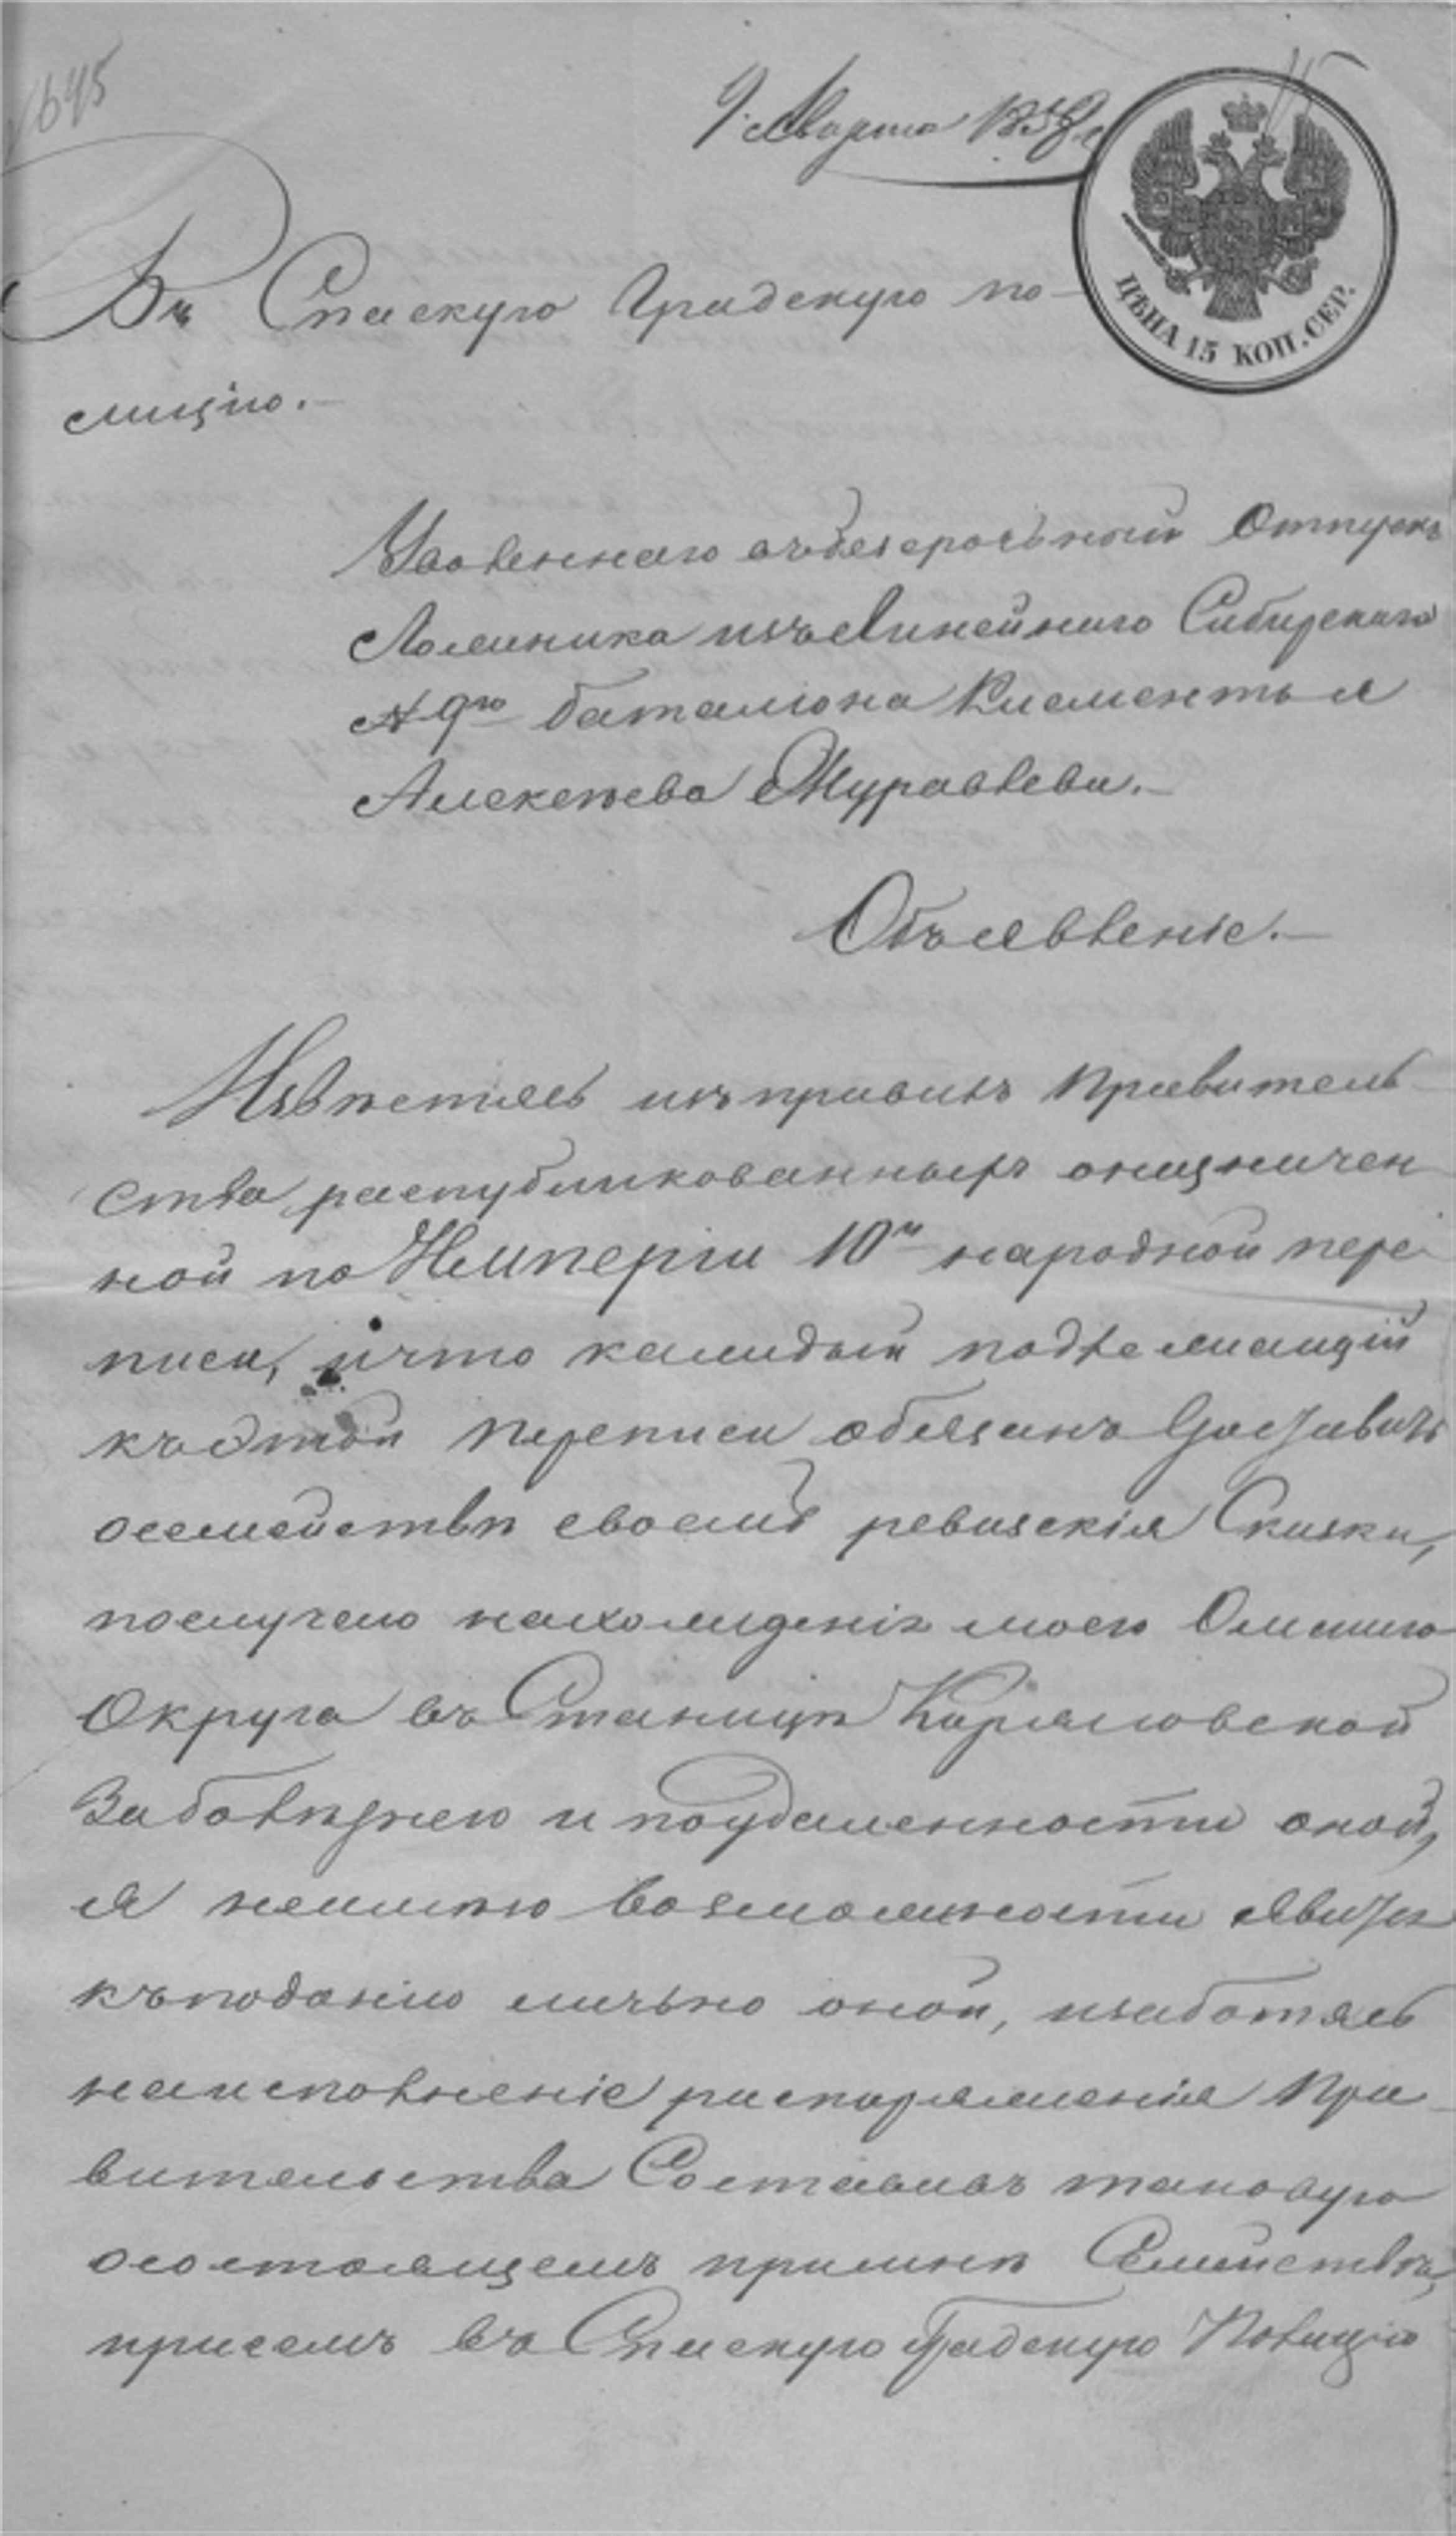 1645
9. Марта 1858 г
15
ЦѢНА 15 КОП. СЕР.
Въ Спаскую Градскую по-
лицію.-
Уволеннаго въбезсрочьный Отпускъ
Полиника изъ Линейнаго Сибирскаго
№ 9го баталіона Клементья
Алексѣева Журавлева.-
Объявленіе.-
Извѣстясь изъ правилъ правитель
ства распубликованныхъ оназначен
ной по Имперіи 10й народной пере
писи, ичто каждый подлежащій
къэтой переписи обязанъ Составить
осемействѣ своемъ ревизскія Сказки,
послучаю нахожденія моего Омскаго
Округа въ Станицѣ Коряковской
Заболѣзнею и поудаленности оной,
я неимѣю возможности Явится
къподанію лично оной, изаботясь
наисполненіе распоряженія пра
вительства Составивъ таковую
осостоящемъ примнѣ Семействѣ,
присемъ въ Спаскую Градскую Полицію